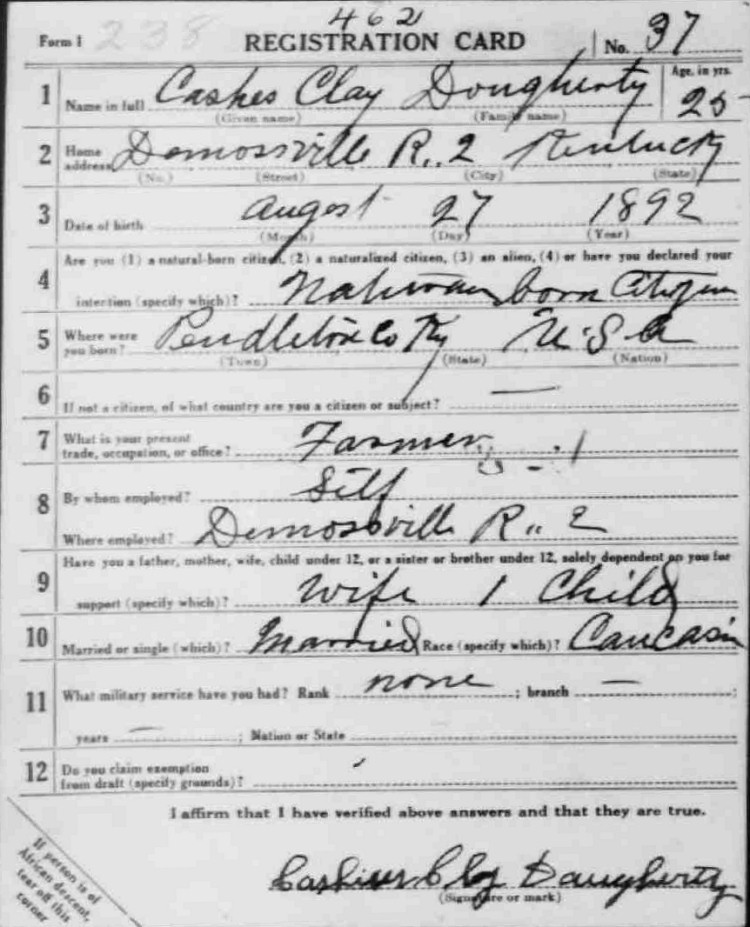 462
Form 1 238 REGISTRATION CARD No. 37
1 Name in full Cashes Clay Dougherty Age, in yrs. 25
(Given name) (Family name)
2 Home address Demossville R.. 2 Kentucky
(No.) (Street) (City) (State)
3 Date of birth August 27 1892
(Month) (Day) (Year)
4 Are you (1) a natural-born citizen, (2) a naturalized citizen, (3) an alien, (4) or have you declared your
intention (specify which)? born Citizen
5 Where were you born? Pendleton Co Ky U.S.A
(Town) (State) (Nation)
6 If not a citizen, of what country are you a citizen or subject? —
7 What is your present trade, occupation, or office? Farmer
8 By whom employed? Self
Where employed? Demossville R.. 2
9 Have you a father, mother, wife, child under 12, or a sister or brother under 12, solely dependent on you for
support (specify which)? Wife 1 Child
10 Married or single (which)? Married Race (specify which)? Caucasin
11 What military service have you had? Rank none ; branch — ;
years — ; Nation or State
12 Do you claim exemption from draft (specify grounds)?
I affirm that I have verified above answers and that they are true.
If person is of
African descent,
tear off this
corner
Cashius Clay Daugherty
(Signature or mark)